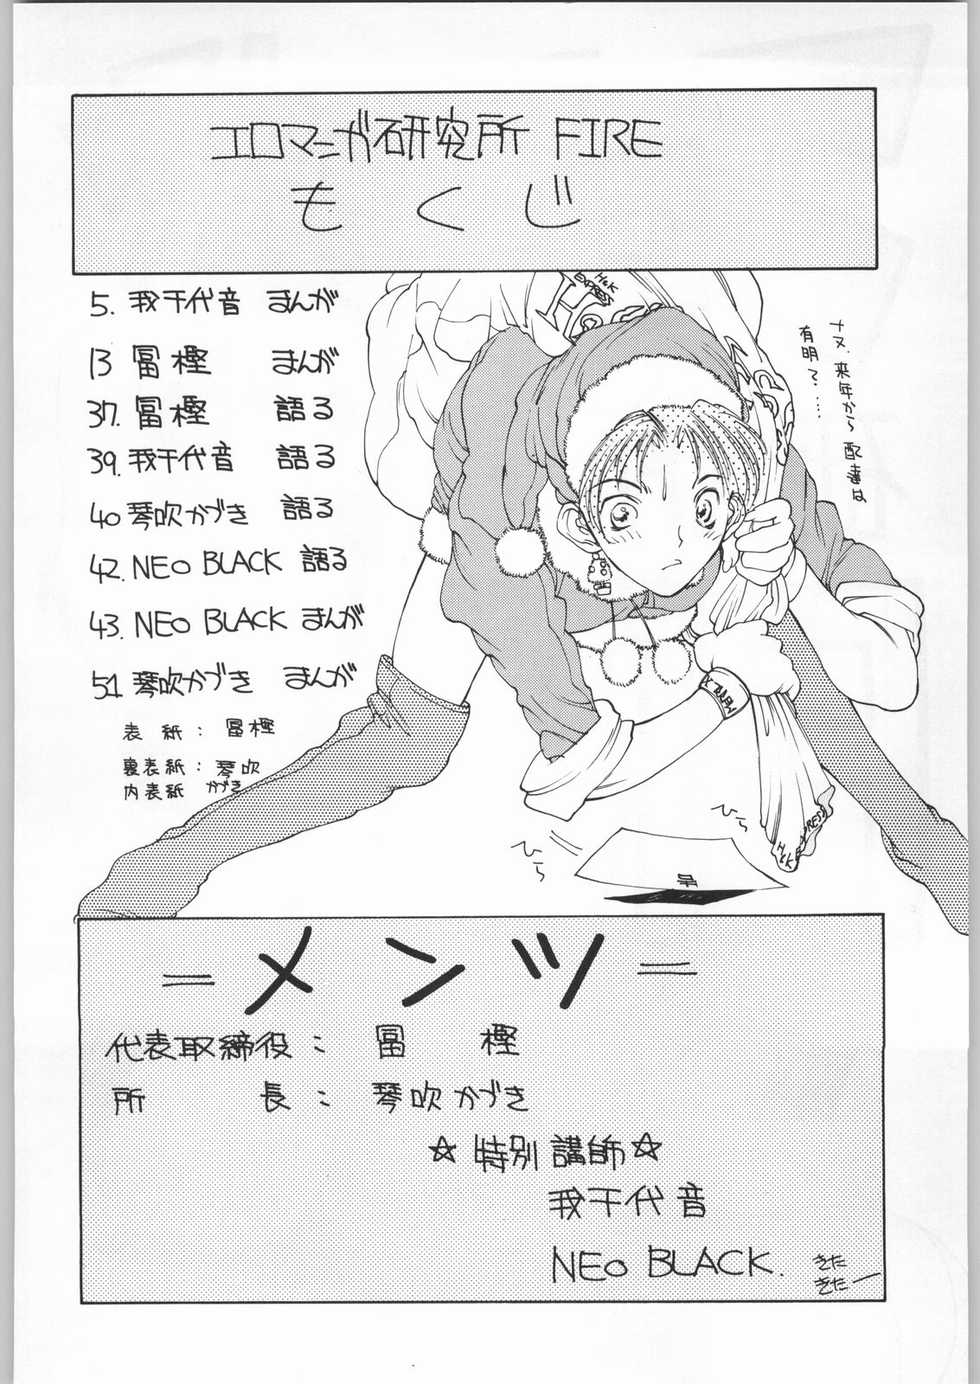 エロマニガ研究所 FIRE
もくじ
5. 我千代音 まんが
13 冨樫 まんが
37. 冨樫 語る
39. 我千代音 語る
40 琴吹かづき 語る
42. NEO BLACK 語る
43. NEO BLACK まんが
51 琴吹かづき まんが
表紙: 冨樫
裏表紙: 琴吹
内表紙 かづき
ナヌ、来年から配達は
有明で……
H&K
EXPRESS
ひら
ひら
H&K EXPRESS
=メンツ=
代表取締役: 冨 樫
所 長: 琴吹かづき
☆特別講師☆
我千代音
NEO BLACK.
きた
きたー